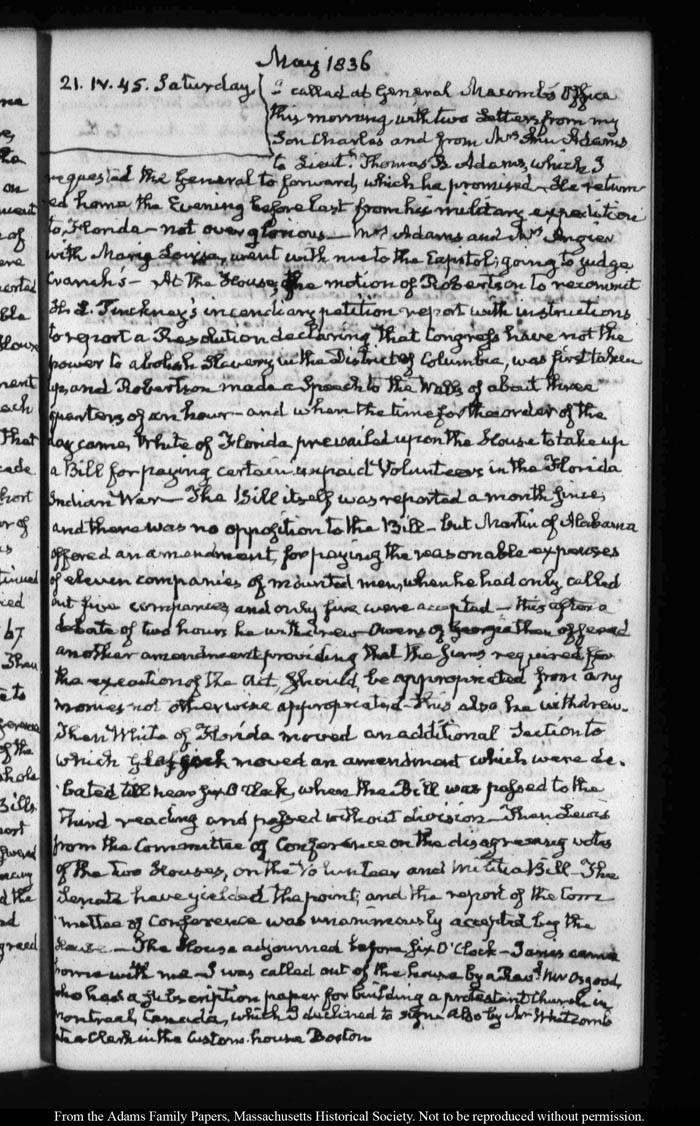 May 1836
21. IV. 45. Saturday
I called at General Macomb's Office
this morning, with two Letters from my
Son Charles and from Mrs. Adams
to Lieutt. Thomas B. Adams, which I
requested the General to forward, which he promised. He return
ed home the Evening before last from his military expedition
to Florida — not over glorious — Mrs Adams and Mrs. Angier
with Mary Louisa, went with me to the Capitol; going to Judge
Cranch's — At the House, the motion of Robertson to recommit
H. L. Pinckney's incendiary petition report with instructions
to report a Resolution declaring that Congress have not the
power to abolish Slavery in the District of Columbia, was first taken
up, and Robertson made a Speech to the Walls of about three
quarters of an hour — and when the time for the order of the
day came, White of Florida prevailed upon the House to take up
a Bill for paying certain unpaid Volunteers in the Florida
Indian War — The Bill itself was reported a month since,
and there was no opposition to the Bill — but Martin of Alabama
offered an amendment, for paying the reasonable expenses
of eleven companies of mounted men, when he had only called
out five companies, and only five were accepted — this after a
debate of two hours he withdrew. Owens of Georgia then offered
another amendment providing that the sums required for
the execution of the Act, should be appropriated from any
monies not otherwise appropriated — this also he withdrew.
Then White of Florida moved an additional Section to
which Glascock moved an amendment which were de-
bated till near six O'Clock, when the Bill was passed to the
third reading and passed without division — Then Lewis
from the Committee of Conference on the disagreeing votes
of the two Houses, on the Volunteer and Militia Bill — The
Senate have yielded the point, and the report of the Com-
mittee of Conference was unanimously accepted by the
House — The House adjourned before six O'Clock —
home with me — I was called out of the house by a Revd. Mr Osgood,
who had a subscription paper for building a protestant Church in
Montreal, Canada, which I declined to sign also by Mr Whitcomb
a Clerk in the Custom-house Boston
From the Adams Family Papers, Massachusetts Historical Society. Not to be reproduced without permission.